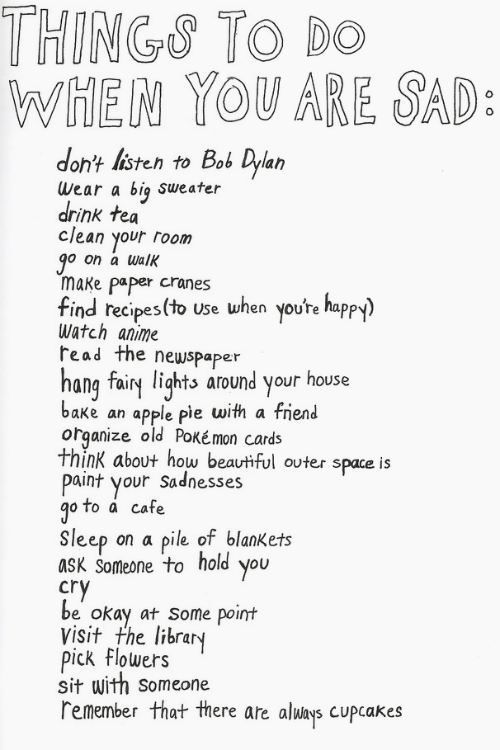 THINGS TO DO
WHEN YOU ARE SAD:
don't listen to Bob Dylan
wear a big sweater
drink tea
clean your room
go on a walk
make paper cranes
find recipes (to use when you're happy)
watch anime
read the newspaper
hang fairy lights around your house
bake an apple pie with a friend
organize old Pokémon cards
think about how beautiful outer space is
paint your sadnesses
go to a cafe
sleep on a pile of blankets
ask someone to hold you
cry
be okay at some point
visit the library
pick flowers
sit with someone
remember that there are always cupcakes